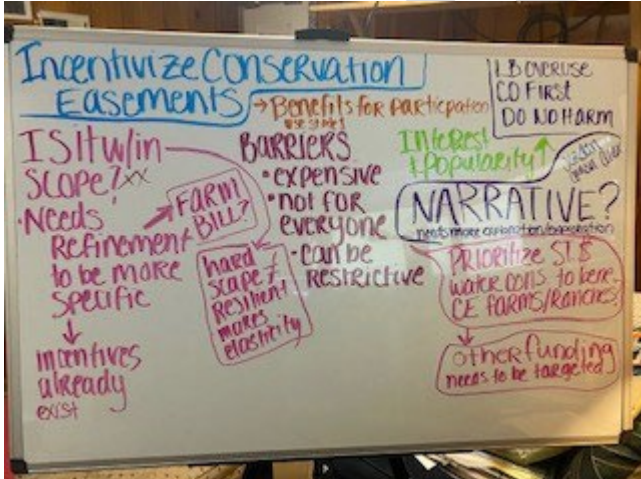 INCENTIVIZE CONSERVATION
EASEMENTS
→ Benefits for participation
LB OVERUSE
CO FIRST
DO NO HARM
IS It w/in
SCOPE?
• Needs
Refinement
to be more
specific
↓
incentives
already
exist
→ FARM
BILL?
hard
scape ≠
Resilient
makes
elasticity
BARRIERS
• expensive
• not for
everyone
• can be
Restrictive
Interest
& Popularity ↑
NARRATIVE?
needs more
PRIORITIZE
water cons. to bene.
CE farms/Ranches
↓
other funding
needs to be targeted